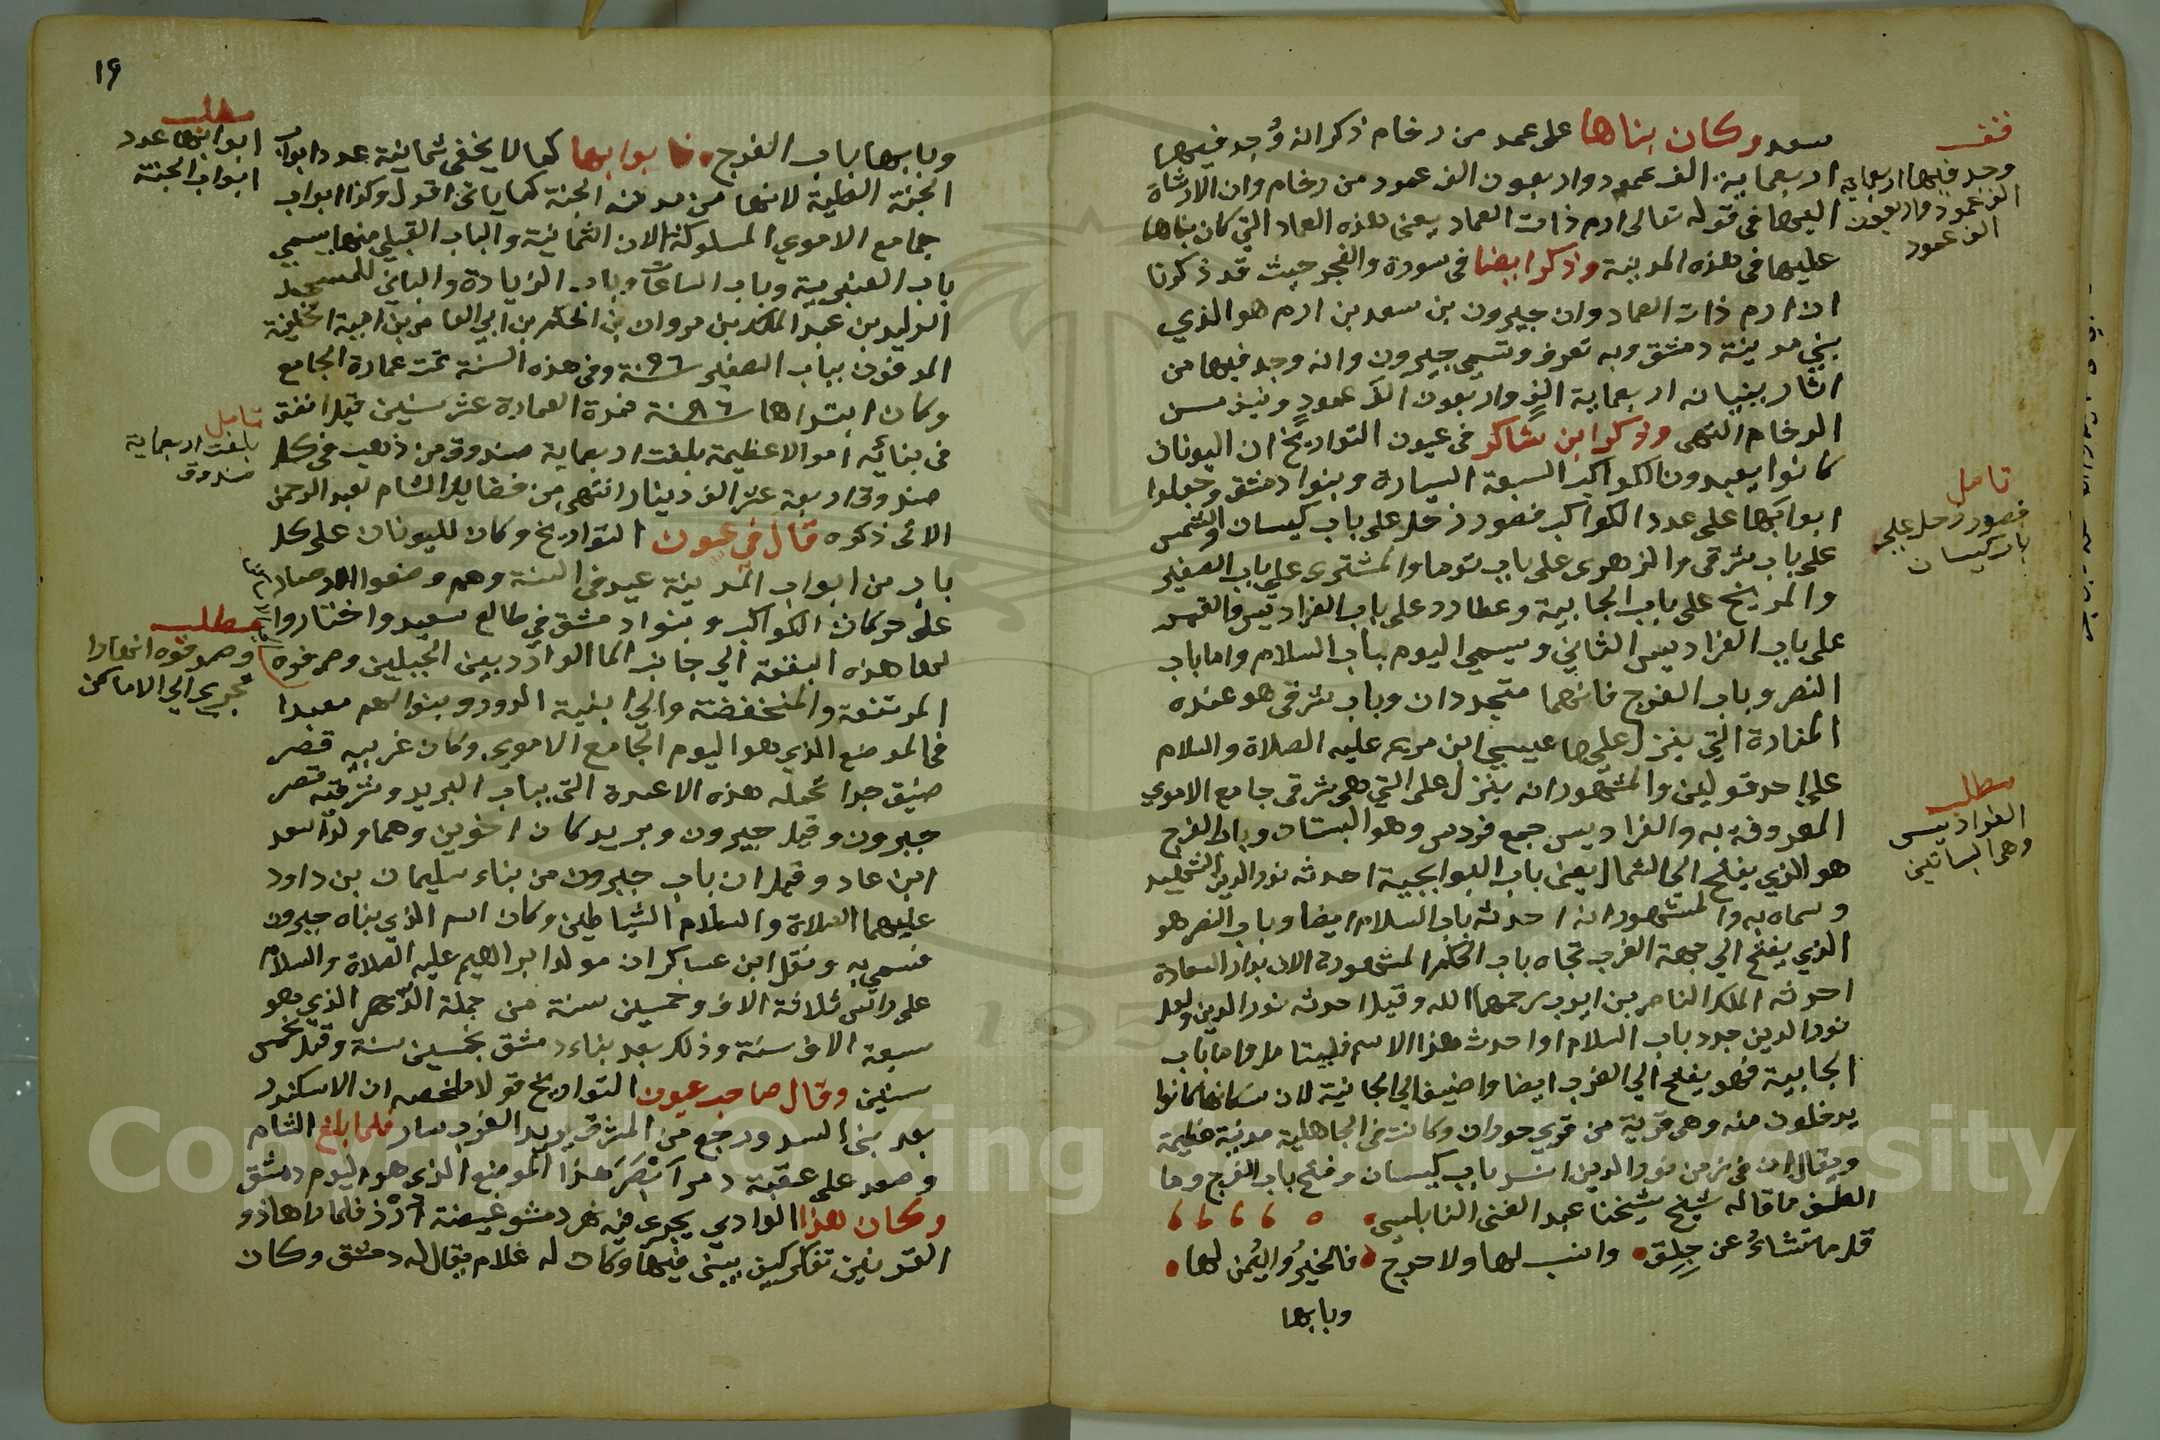 سعد وكان بناها على عمد من رخام ذكر انه وُجد فيها
اربعماية الف عمود واربعون الف عمود من رخام وان الاشارة
اليها في قوله تعالى ارم ذات العماد يعني هذه العماد التي كان بناها
عليها في هذه المدينة وذكر ايضا في سورة والفجر حيث قد ذكرنا
ان ارم ذات العماد وان جيرون بن سعد بن ارم هو الذي
بنى مدينة دمشق وبه تعرف وتسمى جيرون وانه وجد فيها من
اثار بنيانه اربعماية الف واربعون الف عمود ونيف من
الرخام انتهى وذكر ابن شاكر في عيون التواريخ ان اليونان
كانوا يعبدون الكواكب السبعة السيارة وبنوا دمشق وجعلوا
ابوابها على عدد الكواكب فصور زحل على باب كيسان والشمس
على باب شرقي والزهرى على باب توما والمشترى على باب الصغير
والمريخ على باب الجابية وعطارد على باب الفراديس والقمر
على باب الفراديس الثاني ويسمى اليوم باب السلام واما باب
النصر وباب الفرج فانهما متجددان وباب شرقي هو عنده
المنارة التي ينزل عليها عيسى ابن مريم عليه الصلاة والسلام
على احد قولين والمشهور انه ينزل على التي هي شرقي جامع الاموي
المعروفة به والفراديس جمع فردوس وهو البستان وباب الفرج
هو الذي يفتح الى الشمال يعني باب البوابجية احدثه نور الدين الشهيد
وسماه به والمشهور انه احدث باب السلام ايضا وباب النصر هو
الذي يفتح الى جهة الغرب تجاه باب الحكم المشهورة الان بدار السعادة
احدثه الملك الناصر بن ايوب رحمهما الله وقيل احدثه نور الدين ولعل
نور الدين جدد باب السلام او احدث هذا الاسم فليتامل واما باب
الجابية فهو يفتح الى الغرب ايضا واضيف الى الجابية لان سكانها كانوا
يدخلون منه وهي قرية من قرى حوران وكانت في الجاهلية مدينة عظيمة
ويقال ان في زمن نور الدين انسد باب كيسان وفتح باب الفرج وما
الطف ما قاله شيخ شيخنا عبد الغنى النابلسي
قل ما تشاءُ عن جِلِق وانسب لها ولا حرج فالخيرُ واليُمن لها
وبابها
فف
وجد فيها اربعماية
الف عمود واربعون
الف عمود
تامل
فصور زحل على
باب كيسان
مطلب
الفراديس
وهي البساتين
١٦
وبابها باب الفرج فابوابها كما لا يخفى ثمانية عدد ابواب
الجنة العلية لانها من مدينة الجنة كما ياتي اقول وكذا ابواب
جامع الاموي المسلوكة الان الثمانية والباب القبلي منها يسمى
باب العنبرية وباب الساعات وباب الزيادة والباني للمسجد
الوليد بن عبد الملك بن مروان بن الحكم بن ابي العاص بن امية الخليفة
المدفون بباب الصغير سنة ٩٦ وفي هذه السنة تمت عمارة الجامع
وكان ابتداها سنة ٨٦ فمدة العمارة عشر سنين قيل انفق
في بنائه اموالا عظيمة بلغت اربعماية صندوق من ذهب في كل
صندوق اربعة عشر الف دينار انتهى من فضايل الشام لعبد الرحمن
الاتى ذكره قال في عيون التواريخ وكان لليونان على كل
باب من ابواب المدينة عيد في السنة وهم وضعوا الارصاد
على حركات الكواكب وبنوا دمشق في طالع سعيد واختاروا
لها هذه البقعة الى جانب الما الوارد بين الجبلين وصرفوه
المرتفعة والمنخفضة والى ابنية الدور وبنوا لهم معبدا
في الموضع الذي هو اليوم الجامع الاموي وكان غربيه قصر
ضيق جدا تحمله هذه الاعمدة التي بباب البريد وشرقيه قصر
جيرون وقيل جيرون وبريد كان اخوين وهما ولدا سعد
ابن عاد وقيل ان باب جيرون من بناء سليمان بن داود
عليهما الصلاة والسلام الشياطين وكان اسم الذي بناه جيرون
فسمي به ونقل ابن عساكر ان مولد ابراهيم عليه الصلاة والسلام
على راس ثلاثة الاف وخمسين سنة من جملة الدهر الذي هو
سبعة الاف سنة وذلك بعد بناء دمشق بخمسين سنة وقيل بخمس
سنين وقال صاحب عيون التواريخ قولا ملخصه ان الاسكندر
بعد بنى السد ورجع من المشرق يريد الغرب سار فلما بلغ الشام
وصعد على عقبة دمر ابْصَرَ هذا الموضع الذي هو اليوم دمشق
وكان هذا الوادي يجرى فيه نهر دمشق غيضة ارْز فلما راها ذو
القرنين تفكر كيف يبني فيها وكان له غلام يقال له دمشق وكان
مطلب
ابوابها عدد
ابواب الجنة
تامل
بلغت اربعماية
صندوق
مطلب
وصرفوه انهارا
تجرى الى الاماكن